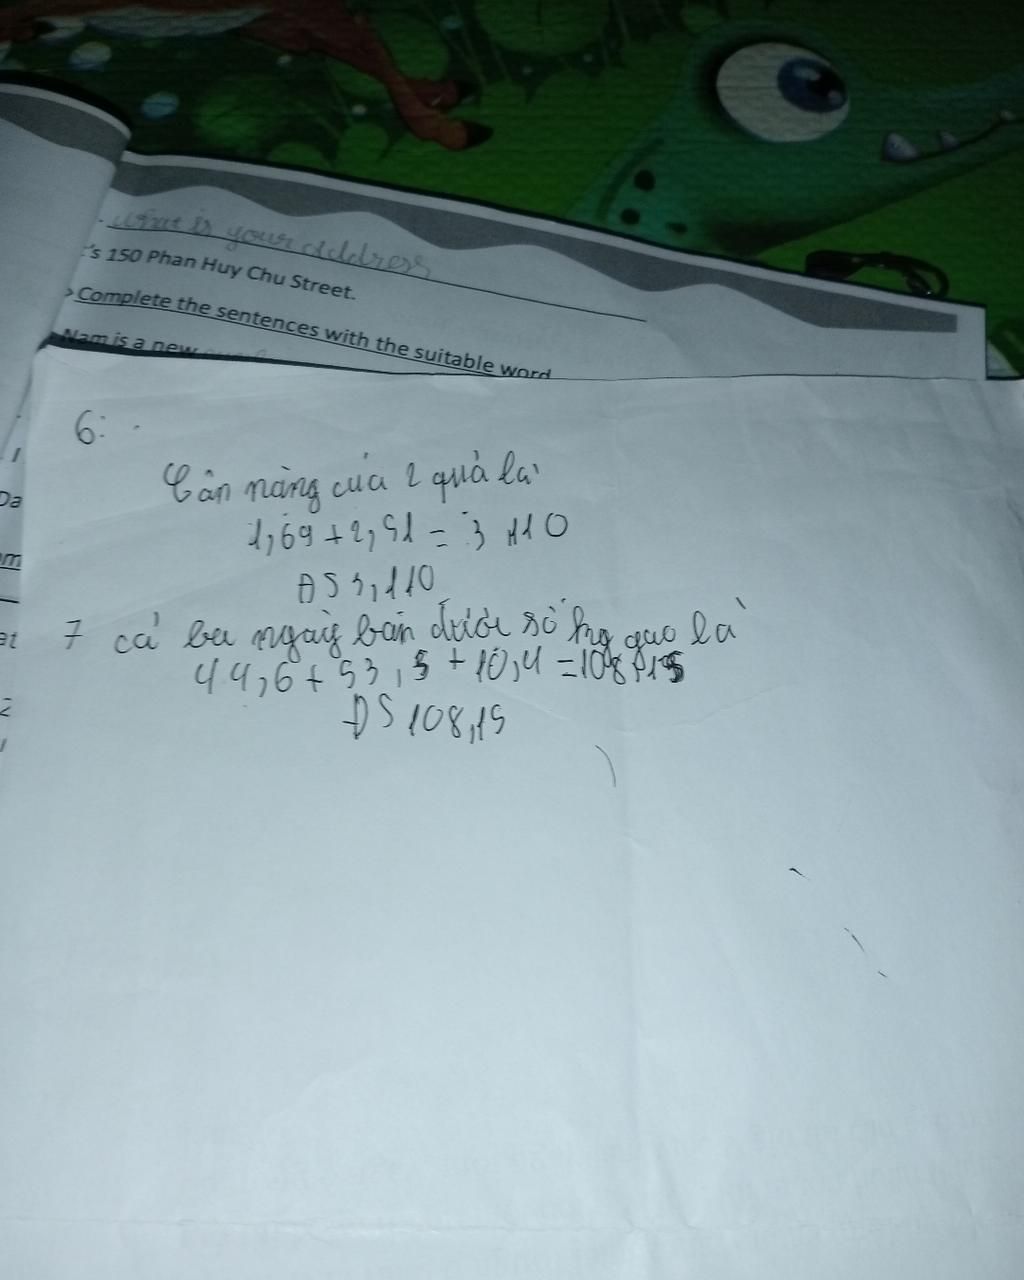 What is your address
's 150 Phan Huy Chu Street.
Complete the sentences with the suitable word
Nam is a new
6:
Cân nặng của 2 quả là
1,69 + 2,51 = 3,110
ĐS 3,110
7 cả ba ngày bán được số kg gạo là
44,6 + 53,5 + 10,4 = 108,15
ĐS 108,15